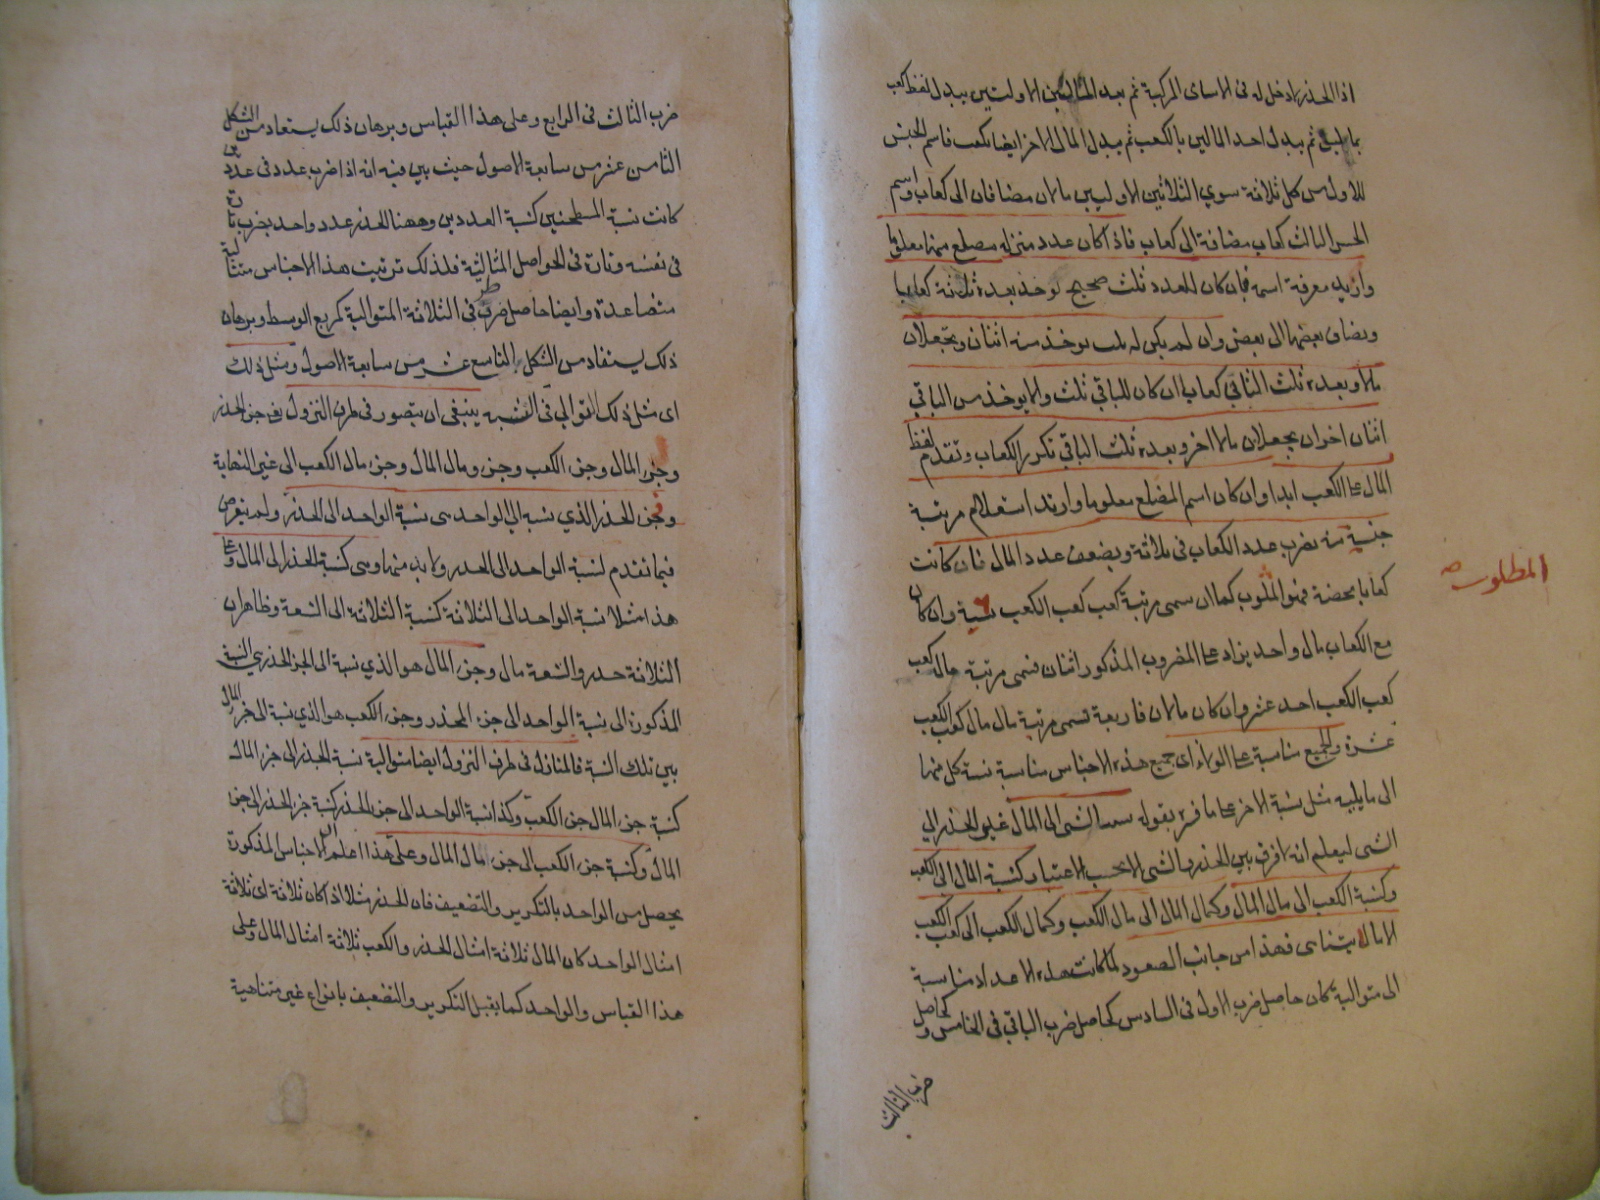 اذ الجذر لا دخل له فى الاسامى المركبة ثم بعد المالين الاولتين يبدل لفظ كعب
بما يليه ثم يبدل احد المالين بالكعب ثم يبدل المال الاخر ايضا بكعب فاسم الجنس
للاول من كل ثلاثة سوي الثلاثين الاوليين مالان مضافان الى كعاب واسم
الجنس الثالث كعاب مضافة الى كعاب فاذا كان عدد منزلة مضلع منها معلوما
واريد معرفة اسمه فان كان للعدد ثلث صحيح يوخذ بعده ثلاثة كعابا
ويضاف بعضها الى بعض وان لم يكن له ثلث يوخذ منه اثنان ويجعلان
مالا وبعدد ثلث الباقي كعاب ان كان للباقي ثلث والا يوخذ من الباقي
اثنان اخران يجعلان مالا اخر وبعدد ثلث الباقي تكرر الكعاب وتقدم لفظ
المال على الكعب ابدا وان كان اسم المضلع معلوما واريد استعلام مرتبة
جنسيته يضرب عدد الكعاب فى ثلاثة ويضعف عدد المال فان كانت
كعابا محضة فهو المطلوب كما ان سمى مرتبة كعب كعب الكعب تسعة وان كان
المطلوب صح
مع الكعاب مال واحد يزاد على المضروب المذكور اثنان فسمى مرتبة مال كعب
كعب الكعب احد عشر وان كان مالان فاربعة فسمى مرتبة مال مال كعب الكعب
عشرة وللجميع مناسبة على الولاء اى جميع هذه الاجناس مناسبة نسبة كل منها
الى ما يليه مثل نسبة الاخر على ما فسره بقوله نسبة الشى الى المال غير الجذر الي
الشى ليعلم انه لا فرق بين الجذر والشى الا بحسب الاعتبار وكنسبة المال الى الكعب
وكنسبة الكعب الى مال المال وكمال المال الى مال الكعب وكمال الكعب الى كعب الكعب
الا ما لا يتناهى فهذا من جانب الصعود لما كانت هذه الاعداد مناسبة
الى متوالية كان حاصل ضرب الاول فى السادس كحاصل ضرب الباقي فى الخامس وكحاصل
ضرب الثالث
ضرب الثالث فى الرابع وعلى هذا القياس وبرهان ذلك يستفاد من الشكل
الثامن عشر من سابعة الاصول حيث بين فيه انه اذا ضرب عدد فى عددين
كانت نسبة المسطحين كنسبة العددين وههنا الجذر عدد واحد يضرب تارة
فى نفسه وتارة فى الحواصل المتتالية فلذلك ترتيب هذا الاجناس متتالية
متصاعدة وايضا حاصل ضرب طرفى الثلاثة المتوالية كمربع الوسط وبرهان
ذلك يستفاد من الشكل التاسع عشر من سابعة الاصول ومثل ذلك
اى مثل ذلك التوالي فى النسبة ينبغى ان يتصور فى طرف النزول فجزء الجذر
وجزء المال وجزء الكعب وجزء مال المال وجزء مال الكعب الى غير النهاية
فجزء الجذر الذي نسبه الي الواحد سى نسبة الواحد الى الجذر ولم يتعرض
فيما تقدم لنسبة الواحد الى الجذر ولا بد منها وسى كنسبة الجذر الى المال وعلى
هذا مثلا نسبة الواحد الى الثلاثة كنسبة الثلاثة الى التسعة وظاهر ان
الثلاثة جذر والتسعة مال وجزء المال هو الذي نسبة الى الجزء الجذرسي النسبة
المذكورة الى نسبة الواحد الى جزء الجذر وجزء الكعب هو الذي نسبة الى جزء المال
بين تلك النسبة فالمنازل فى طرف النزول ايضا متوالية نسبة الجذر الى جزء المال
كنسبة جزء المال جزء الكعب وكذا نسبة الواحد الى جزء الجذر كنسبة جزء الجذر الى جزء
المال وكنسبة جزء الكعب الى جزء مال المال وعلى هذا اعلم ان الاجناس المذكورة
يحصل من الواحد بالتكرير والتضعيف فان الجذر مثلا اذا كان ثلاثة اى ثلاثة
امثال الواحد كان المال ثلاثة امثال الجذر والكعب ثلاثة امثال المال وعلى
هذا القياس والواحد كما يقبل التكرير والتضعيف بانواع غير متناهية